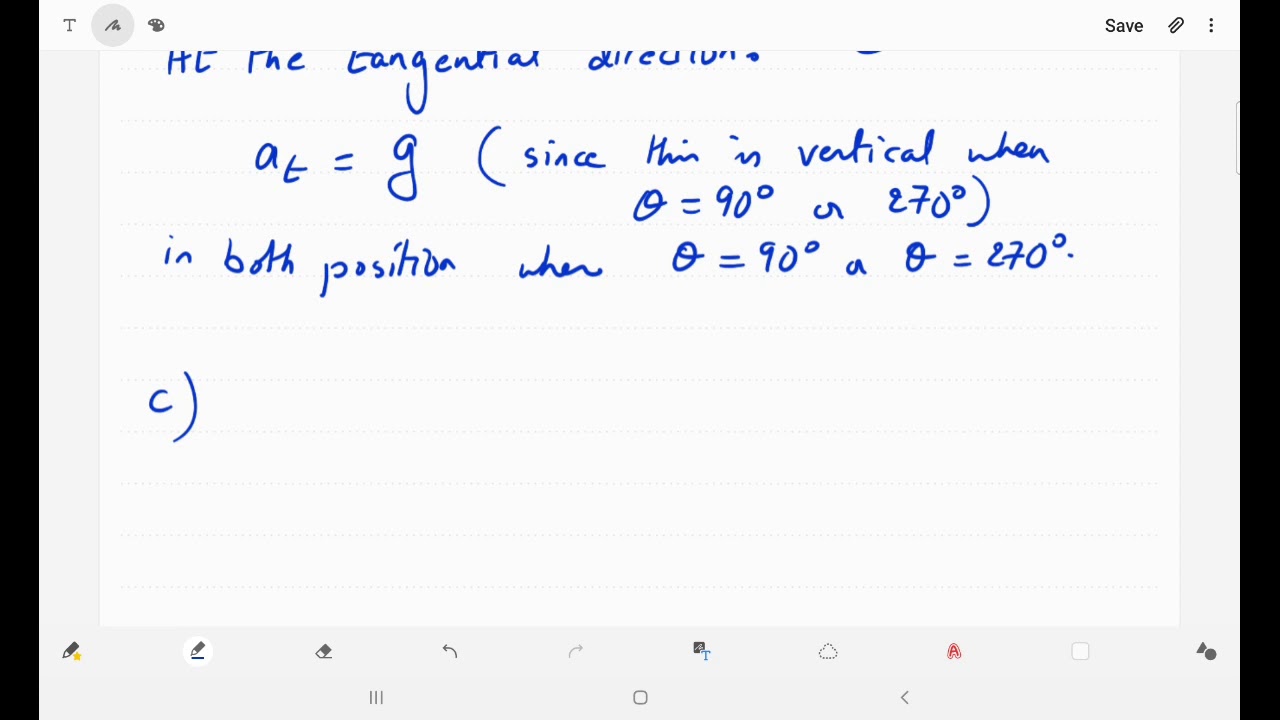 T
Save
At the tangential direction.
a_t = g (since this is vertical when
θ = 90° or 270°)
in both position when θ = 90° or θ = 270°.
c)
T
A